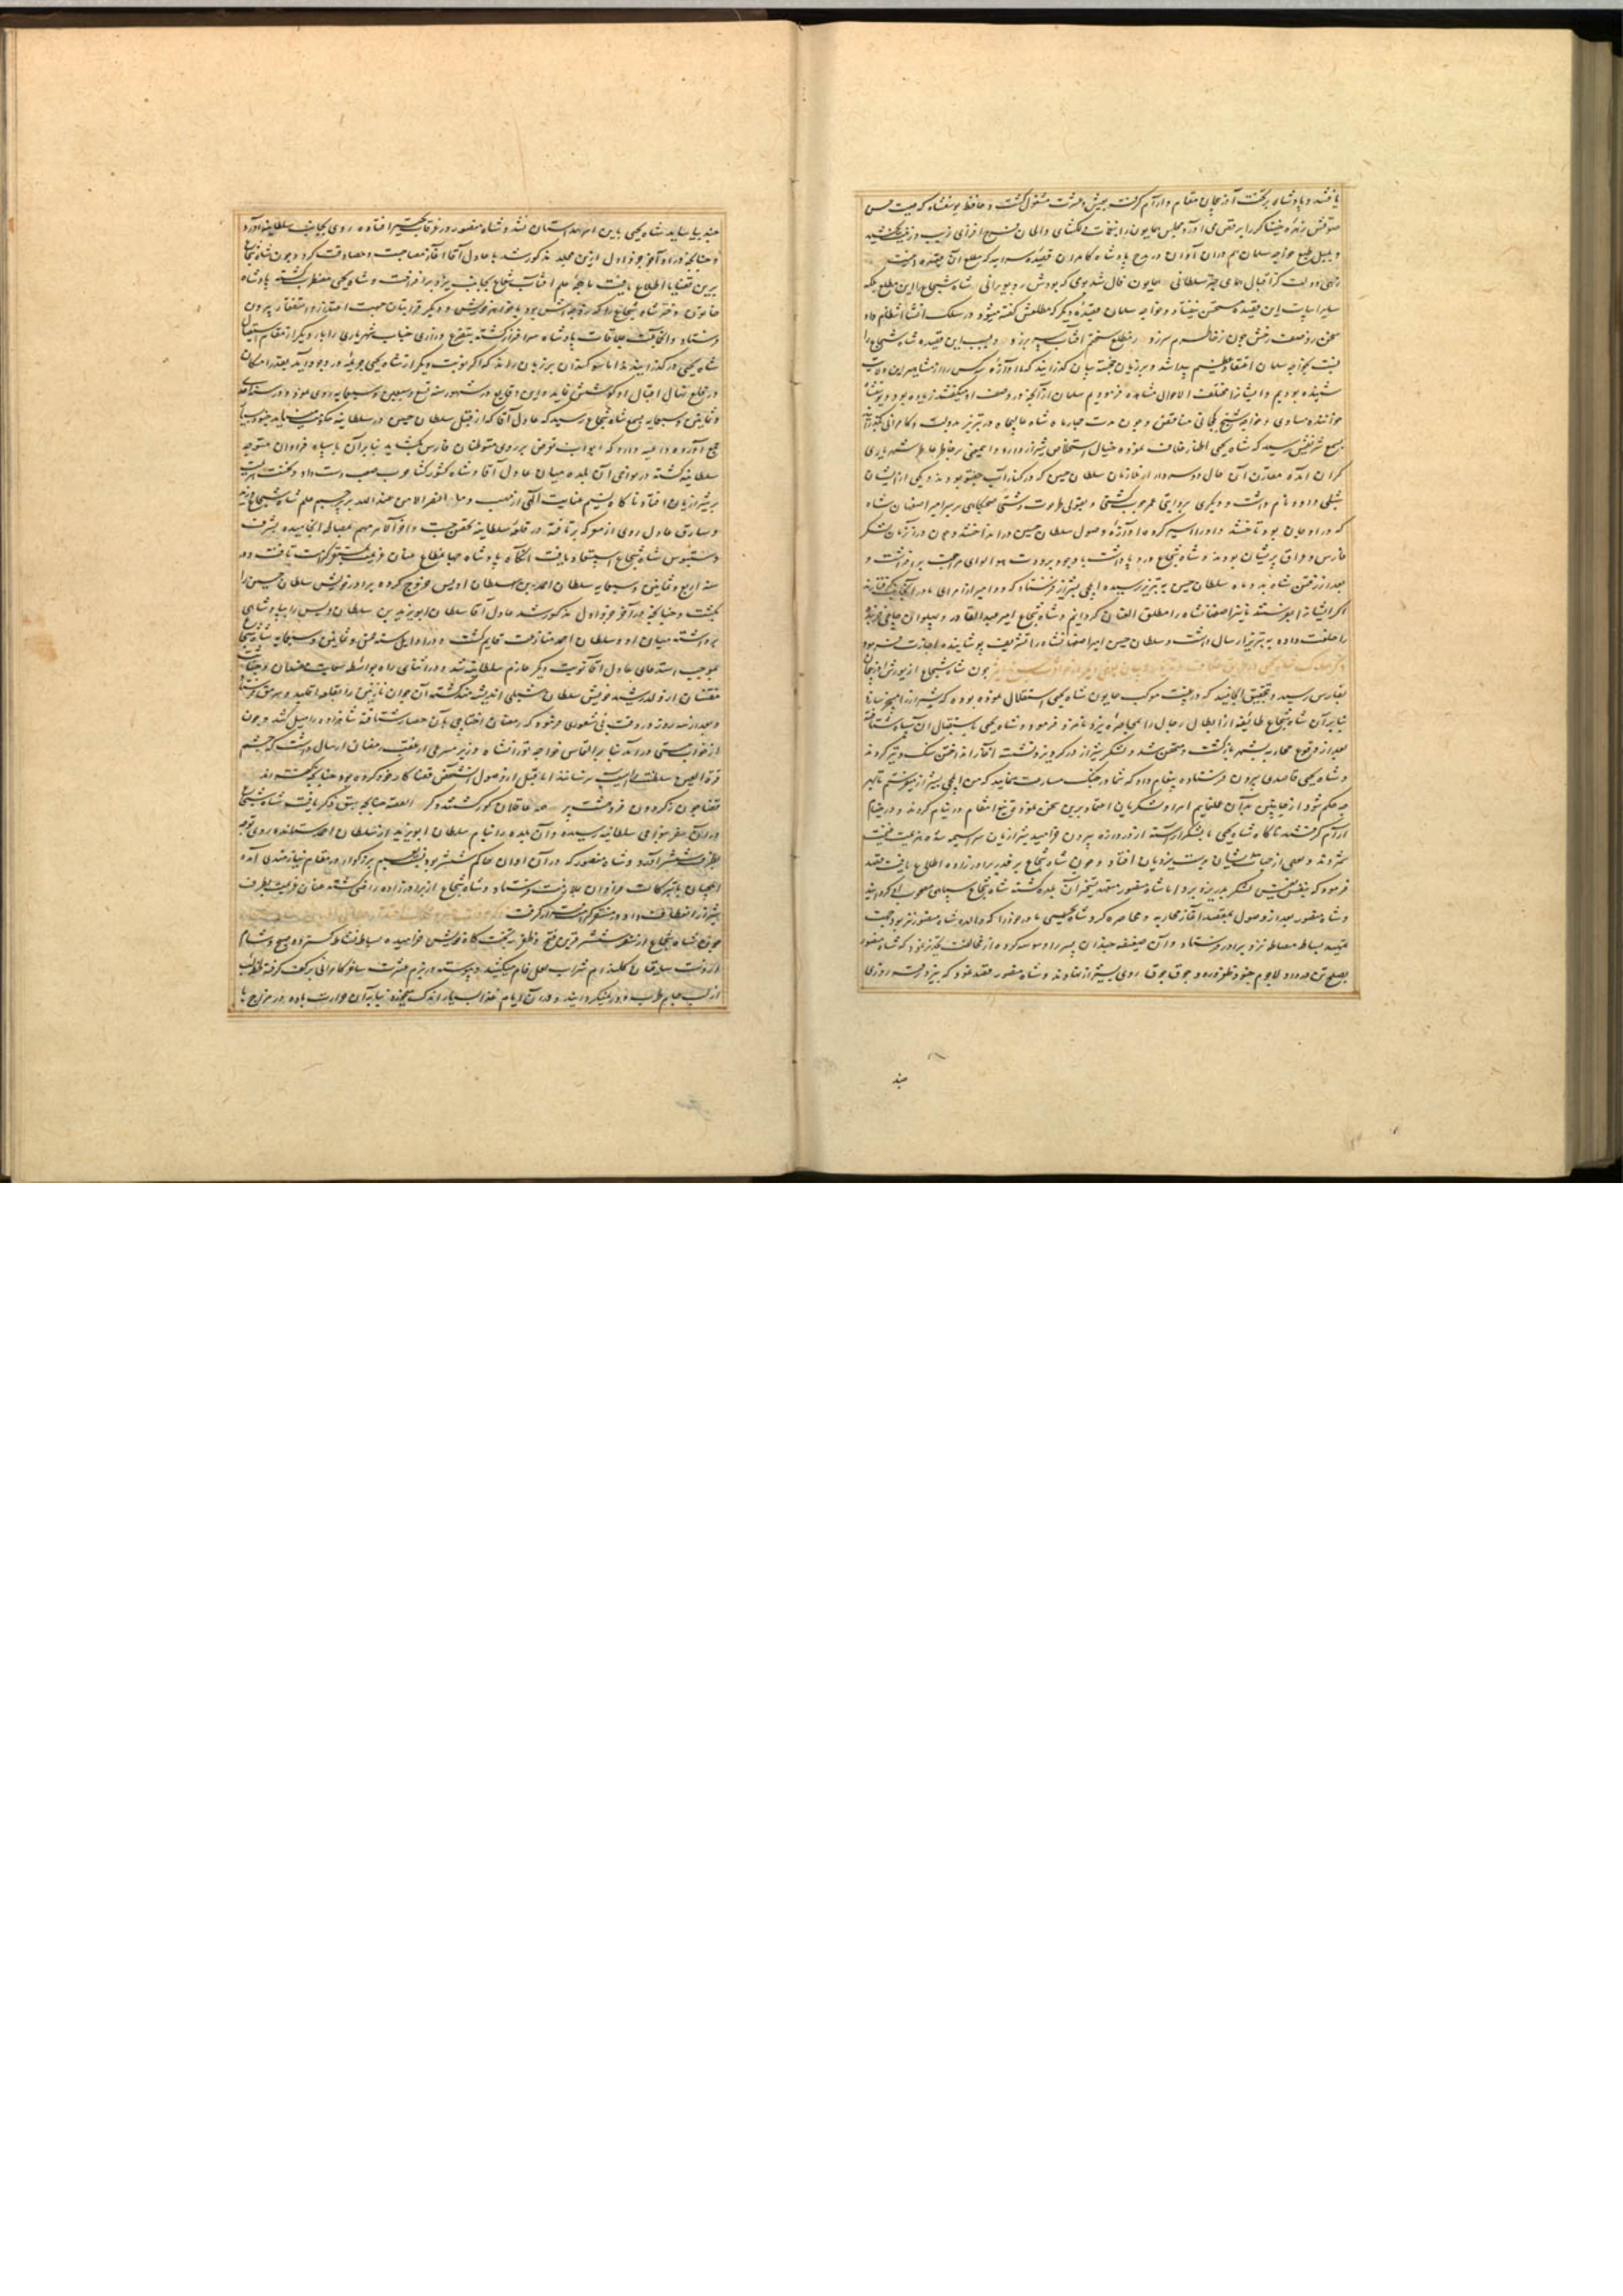 یافتند و پادشاه بر تخت آذربیجان مقام و آرام گرفت بعیش و عشرت مشغول گشت و حافظ یوسفشاه که صیت حسن
صوتش زهره خنیاگر را برقص می آورد در مجلس همایون را بنغمات دلگشای و الحان فرح افزای زیب و زینت می بخشید
و بلبل طبع خواجه سلمان هم دران آوان در مدح پادشاه کامران قصیده سراید که مطلع آن اینست
زهی دولت کز اقبال همای چتر سلطانی همایون فال شد بومی که بودش رو بویرانی شاه شجاع را این مطلع بلکه
سایر ابیات این قصیده مستحسن نیفتاد و خواجه سلمان قصیده دیگر که مطلعش گفته میشود در سلک انشا انتظام داد
سخن بوصف رخش چون ز خاطرم سر زد ز مطلع سخنم آفتاب سر بر زد و بسبب این قصیده شاه شجاع را
نسبت بخواجه سلمان اعتقاد عظیم پیدا شد و بر زبان خجسته بیان گذرانید که ما آوازه سه کس را از مشاهیر این ولایت
شنیده بودیم و ایشانرا مختلف الاحوال مشاهده فرمودیم سلمان از آنچه در وصف او میگفتند زیاده بود و یوسفشاه
خواننده مساوی و خواجه شیخ کججانی متناقض و چون مدت چهار ماه شاه عالیجاه در تبریز بدولت و کامرانی بگذرانید
بسمع شریفش رسید که شاه یحیی اظهار خلاف نموده خیال استخلاص شیراز دارد و این معنی بر خاطر عاطر شهریاری
گران آمده مقارن آن حال دو سردار از ملازمان سلطان حسین که در کنار آب جغتو بودند و یکی از ایشان
شبلی داود نام داشت و دیگری بروایتی عمر جوب گشتی و بقولی طرمت دشتی صبحگاهی بر سر امیر اصفهان شاه
که در اوجان بود تاختند و او را اسیر کرده آوازه وصول سلطان حسین در انداختند و چون دران زمان لشکر
فارس و عراق پریشان بودند و شاه شجاع درد پا داشت با وجود برودت هوا لوای مراجعت بر افراشت و
بعد از رفتن شاه بدو ماه سلطان حسین به تبریز رسیده ایلچی بشیراز فرستاد که دو امیر از امرای ما در آنجا گرفتارند
اگر ایشانرا بفرستند ما نیز اصفهانشاه را مطلق العنان گردانیم و شاه شجاع امیر عبدالقادر و پهلوان حاجی خربنده
را خلعت داده به تبریز ارسال داشت و سلطان حسین امیر اصفهانشاه را تشریف پوشانیده اجازت فرمود
چون شاه شجاع از یورش آذربیجان
بفارس رسید و بتحقیق انجامید که در غیبت موکب همایون شاه یحیی استقلال نموده بوده که شیراز را مسخر سازد
بنابر آن شاه شجاع طائفه از ابطال رجال را بمحاصره یزد نامزد فرمود و شاه یحیی باستقبال آن سپاه شتافته
بعد از وقوع محاربه بشهر باز گشت و متحصن شد و لشکر شیراز در گرد یزد نشسته آغاز انداختن سنگ و تیر کردند
و شاه یحیی قاصدی بیرون فرستاده پیغام داد که شما در جنگ مسارعت منمایید که من ایلچی بشیراز میفرستم تا بهر
چه حکم شود از جانبین بدان عمل نمایم امرا و لشکریان اعتماد برین سخن نموده تیغ انتقام در نیام کردند و در خیام
آرام گرفتند ناگاه شاه یحیی با لشکر آراسته از دروازه بیرون خرامید شیرازیان سراسیمه شده هزیمت غنیمت
شمردند و بعضی از جهات ایشان بدست یزدیان افتاد و چون شاه شجاع بر غدر برادر زاده اطلاع یافت قصد
فرمود که بنفس نفیس لشکر بدر یزد برد اما شاه منصور متعهد تسخیر آن بلده گشته شاه شجاع سپاهی مصحوب او گردانید
و شاه منصور بعد از وصول بمقصد آغاز محاربه و محاصره کرد و شاه یحیی مادر خود را که والده شاه منصور نیز بود جهت
تمهید بساط مصالحه نزد برادر فرستاد و آن ضعیفه چندان پسر را وسوسه کرد که از مخالفت تحذیر نمود که شاه منصور
بصلح تن در داد و لاجرم جنود ظفر ورود جوق جوق روی بشیراز نهادند و شاه منصور قصد نمود که بیزد رفته روزی
چند
چند بیاساید شاه یحیی باین امر همداستان نشد و شاه منصور در غرقاب تحیر افتاده روی بجانب سلطانیه آورد
و چنانچه در اواخر جزو اول ازین مجلد مذکور شد با عادل آقا آغاز مصاحبت و مصادقت کرد و چون شاه شجاع
برین قضایا اطلاع یافت ماهچه علم آفتاب شعاع بجانب یزد بر افراخت و شاه یحیی مضطرب گشته پادشاه
خاتون دختر شاه شجاع را که زوجه اش بود با خواهر خویش و دیگر قرابتان جهت اعتذار و استغفار بیرون
فرستاد و آن جماعت بملاقات پادشاه سرافراز گشته بتضرع و زاری جناب شهریاری را بار دیگر از مقام استیصال
شاه یحیی در گذرانیدند اما سوگندان بر زبان راند که اگر نوبت دیگر از شاه یحیی جریمه در وجود آید بقدر امکان
در قلع نهال اقبال او کوشش نماید و این وقایع در شهور سنه تسع و سبعین و سبعمایه روی نمود و در سنه احدی
و ثمانین و سبعمایه بسمع شاه شجاع رسید که عادل آقا که از قبل سلطان حسین در سلطانیه حکومت مینماید جنود بسیار
جمع آورده داعیه دارد که ابواب تعرض بر روی متوطنان فارس بگشاید بنابر آن با سپاه فراوان متوجه
سلطانیه گشته در نواحی آن بلده میان عادل آقا و شاه کشور گشا حرب صعب دست داد و نخست هزیمت
بر شیرازیان افتاد ناگاه نسیم عنایت الهی از مهب وما النصر الا من عند الله بر پرچم علم شاه شجاع وزید
و سارق عادل روی از معرکه بر تافته در قلعه سلطانیه تحصن جست و آخر الامر مهم بمصالحه انجامیده بشرف
دستبوس شاه شجاع استسعاد یافت آنگاه پادشاه جهانمطاع عنان عزیمت بمستقر کرامت تافت و در
سنه اربع و ثمانین و سبعمایه سلطان احمد بن سلطان اویس خروج کرده برادر خویش سلطان حسین را
بکشت و چنانچه در آخر جزو اول مذکور شد عادل آقا سلطان ابویزید بن سلطان اویس را بپادشاهی
برداشته میان او و سلطان احمد منازعت قایم گشت و در اوایل سنه خمس و ثمانین و سبعمایه شاه شجاع
بموجب استدعای عادل آقا نوبت دیگر عازم سلطانیه شد و در اثنای راه بواسطه سعایت مفسدان و خباثت
مفتنان از ولد رشید خویش سلطان شبلی اندیشه مند گشته آن جوان نازنین را بقلعه اقلید و سرمق فرستاد
و بعد از سه روز در وقت بی شعوری فرمود که رمضان اختاجی بآن حصار شتافته شاهزاده را میل کشد و چون
از خواب مستی درآمد بنابر التماس خواجه تورانشاه وزیر مسرعی از عقب رمضان ارسال داشت که چشم
قرة العین سلطنت را آسیب نرساند اما قبل از وصول آن شخص قضا کار خود کرده بود چنانچه گفته اند
قضا چون ز گردون فروهشت پر همه عاقلان کور گشتند و کر القصه چنانچه سبق ذکر یافت شاه شجاع
دران سفر بنواحی سلطانیه رسیده و آن بلده را بنام سلطان ابویزید از سلطان احمد ستانده روی توجه
بطرف ششتر آورد و شاه منصور که در آن اوان حاکم ششتر بود نسبت بعم بزرگوار در مقام نیازمندی آمده
ایلچیان با تبرکات فراوان بملازمت فرستاد و شاه شجاع از برادر زاده راضی گشته عنان عزیمت بطرف
شیراز انعطاف داد و در مستقر کرامت قرار گرفت
چون شاه شجاع از سفر ششتر قرین فتح و ظفر بتخت گاه خویش خرامیده بساط نشاط گسترده صبح و شام
از دست ساقیان گلندام شراب لعل فام میکشید و پیوسته در بزم عشرت ساغر کامرانی بر کف گرفته
از لب جام طرب بدور میگردانید و دران ایام غذا بسیار اندک میخورد بنابر آن حرارت باده در مزاج با